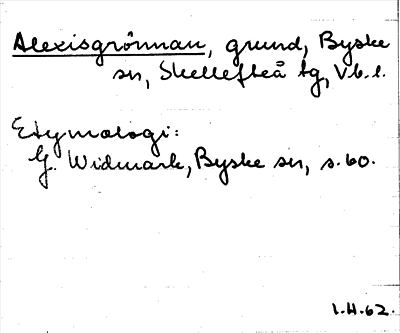 Alexisgrönnan, grund, Byske
sn, Skellefteå tg, Vb. l.
Etymologi:
G. Widmark, Byske sn, s. 60.
I.H. 62.